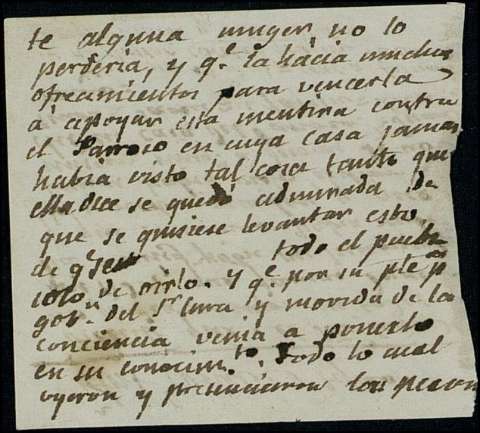 te alguna muger no lo
perderia, y q.e la hacia muchos
ofrecimientos para vencerla
a apoyar esta mentira contra
el Parroco en cuya casa jamas
habia visto tal cosa tanto que
ella dice se quedó admirada de
que se quisiese levantar esto
de q.e todo el pueblo
solo de oirlo. y q.e por su
gov.n del S.r Cura y movida de la
conciencia venia a ponerlo
en su conocim.to. Todo lo cual
oyeron y presenciaron los